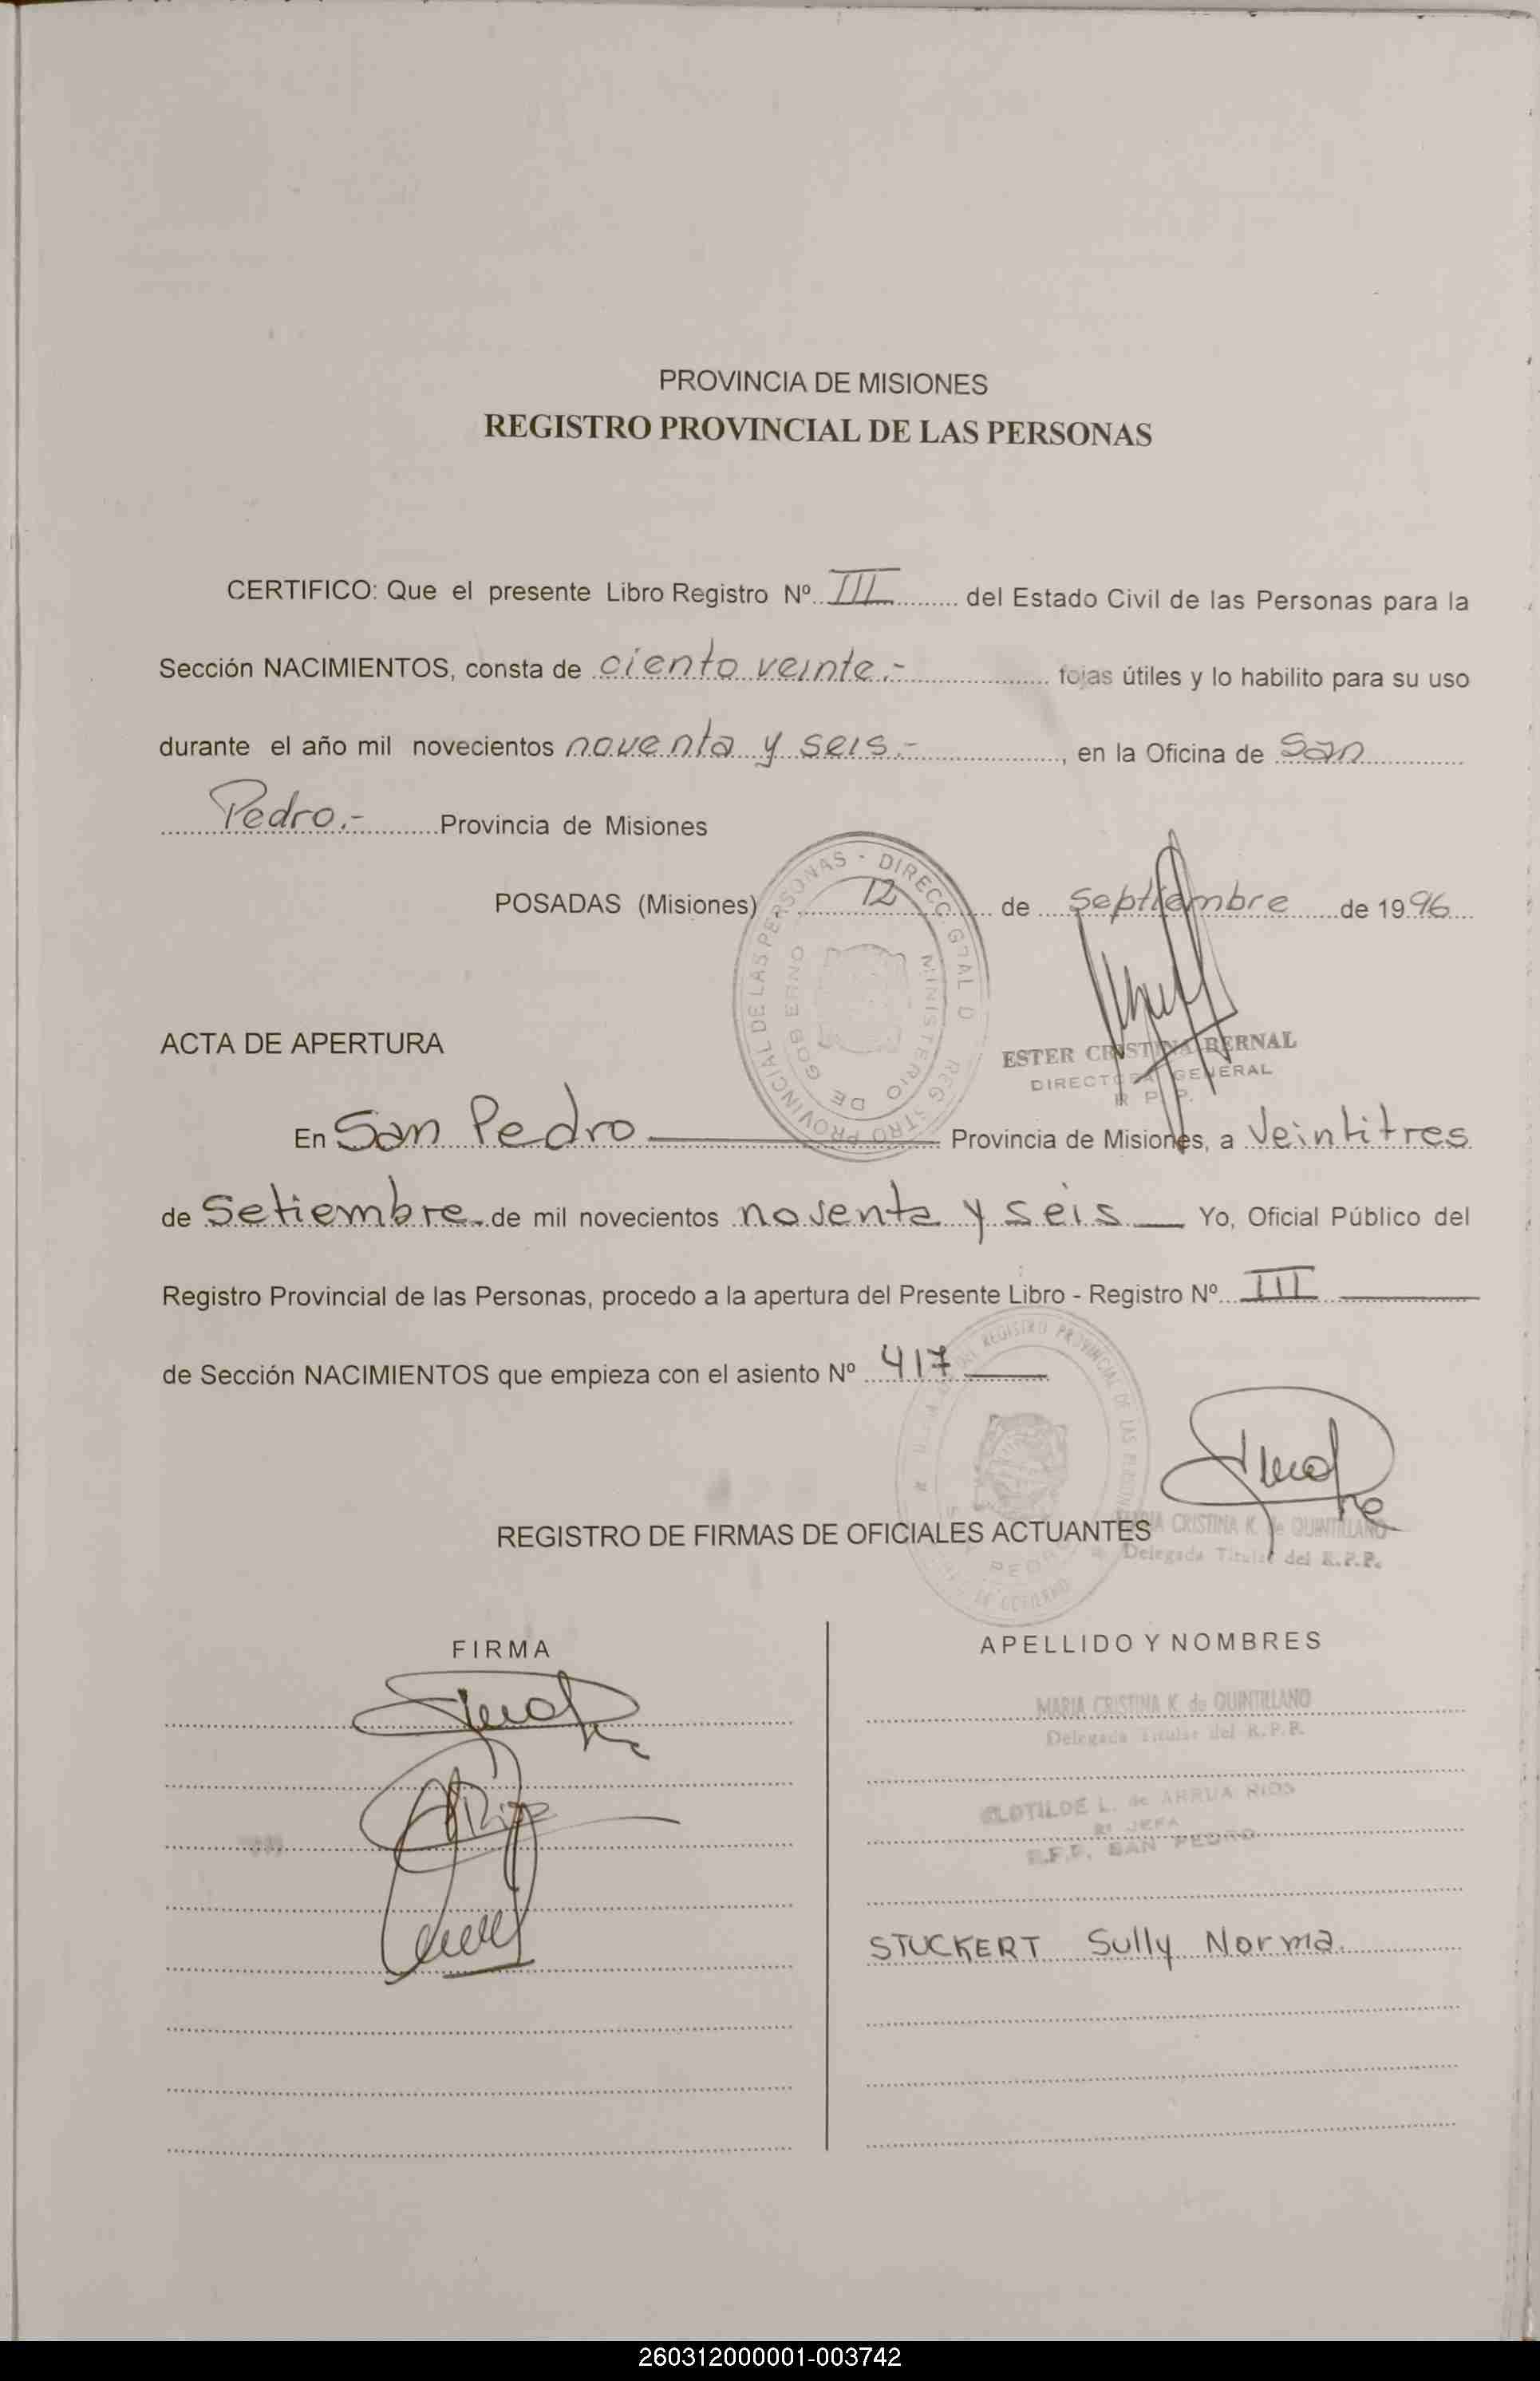 PROVINCIA DE MISIONES
REGISTRO PROVINCIAL DE LAS PERSONAS
CERTIFICO: Que el presente Libro Registro Nº III del Estado Civil de las Personas para la
Sección NACIMIENTOS, consta de ciento veinte.- fojas útiles y lo habilito para su uso
durante el año mil novecientos noventa y seis.-, en la Oficina de San
Pedro.- Provincia de Misiones
POSADAS (Misiones), 12 de septiembre de 1996
DIRECC GRAL D REGISTRO PROVINCIAL DE LAS PERSONAS -
MINISTERIO DE GOBIERNO
ESTER CRISTINA BERNAL
DIRECTORA GENERAL
R P P.
ACTA DE APERTURA
En San Pedro Provincia de Misiones, a Veintitres
de Setiembre de mil novecientos noventa y seis Yo, Oficial Público del
Registro Provincial de las Personas, procedo a la apertura del Presente Libro - Registro Nº III
de Sección NACIMIENTOS que empieza con el asiento Nº 417
REGISTRO PROVINCIAL DE LAS PERSONAS
PEDRO
DE GOBIERNO
MARIA CRISTINA K. de QUINTILLANO
Delegada Titular del R.P.P.
REGISTRO DE FIRMAS DE OFICIALES ACTUANTES
FIRMA
APELLIDO Y NOMBRES
MARIA CRISTINA K. de QUINTILLANO
Delegada Titular del R.P.P.
CLOTILDE L. de ARRUA RIOS
JEFA
SAN PEDRO
STUCKERT Sully Norma
260312000001-003742